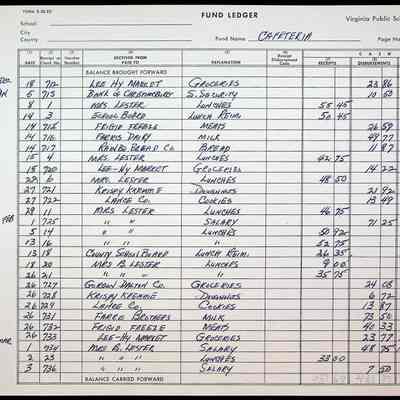 FORM S-20-ED
FUND LEDGER
Virginia Public Sc
City
County
School
Fund Name CAFETERIA
Page N
CASH
RECEIVED FROM PAID TO
EXPLANATION
RECEIPTS
DISBURSEMENTS
BALANCE BROUGHT FORWARD
18 712 LEE HY MARKET GROCERIES 23 86
5 713 BANK of CHRISTIANSBURG S. SECURITY 10 53
8 1 MRS LESTER LUNCHES 55 45
14 3 SCHOOL BOARD LUNCH REIM. 50 45
14 715 FRIGID FREEZE MEATS 26 59
14 716 FARRIS DAIRY MILK 49 77
14 717 RAINBO BREAD Co BREAD 11 87
15 4 MRS. LESTER LUNCHES 42 75
18 720 LEE-HY MARKET GROCERIES 14 22
22 6 MRS. LESTER LUNCHES 48 50
27 721 KRISPY KREME DOUGHNUTS 21 92
27 722 LANCE Co. COOKIES 13 49
29 11 MRS LESTER LUNCHES 46 75
FEB 1 725 " " SALARY 71 25
5 14 " " LUNCHES 50 92
13 16 " " " 52 75
13 18 COUNTY SCHOOL BOARD LUNCH REIM. 26 35
18 20 MRS B LESTER LUNCHES 9 00
26 21 " " " " 35 75
26 727 GORDON DALTON Co. GROCERIES 24 08
26 728 KRISPY KREME DOUGHNUTS 6 72
26 729 LANCE Co COOKIES 13 87
26 731 FARRIS BROTHERS MILK 73 50
26 732 FRIGID FREEZE MEATS 40 33
26 733 LEE-HY MARKET GROCERIES 23 77
MAR 1 734 MRS B. LESTER SALARY 48 75
2 23 " " " LUNCHES 33 00
3 736 " " " SALARY 7 50
BALANCE CARRIED FORWARD